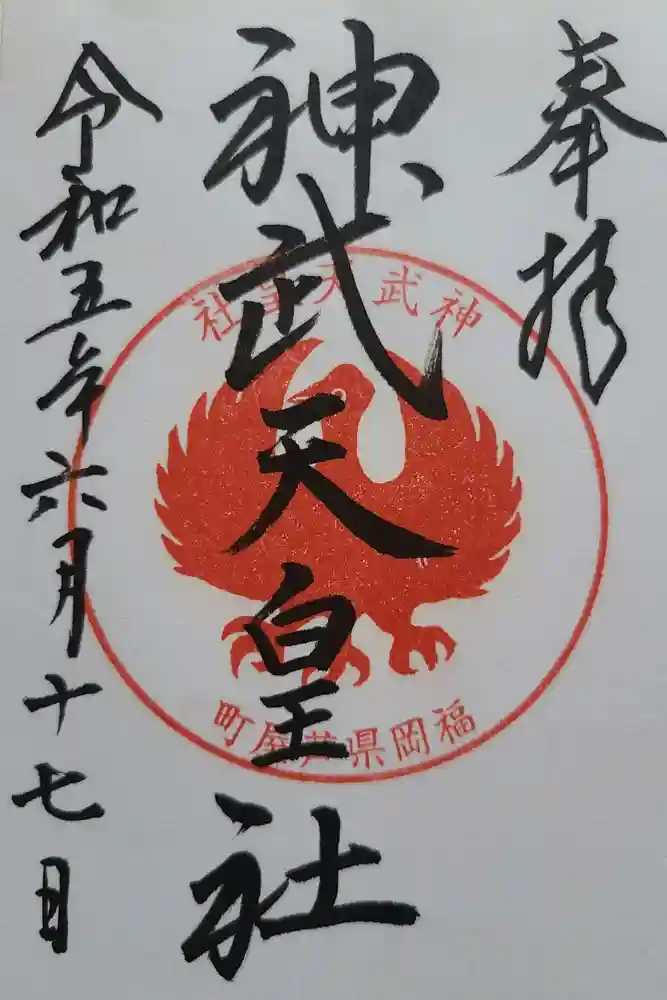 奉拝
神武天皇社
令和五年六月十七日
神武天皇社
福岡県芦屋町